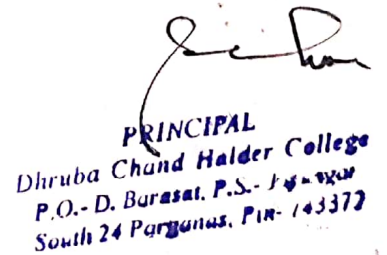 PRINCIPAL
Dhruba Chand Halder College
P.O.- D. Barasat, P.S.-
South 24 Parganas, Pin- 743372